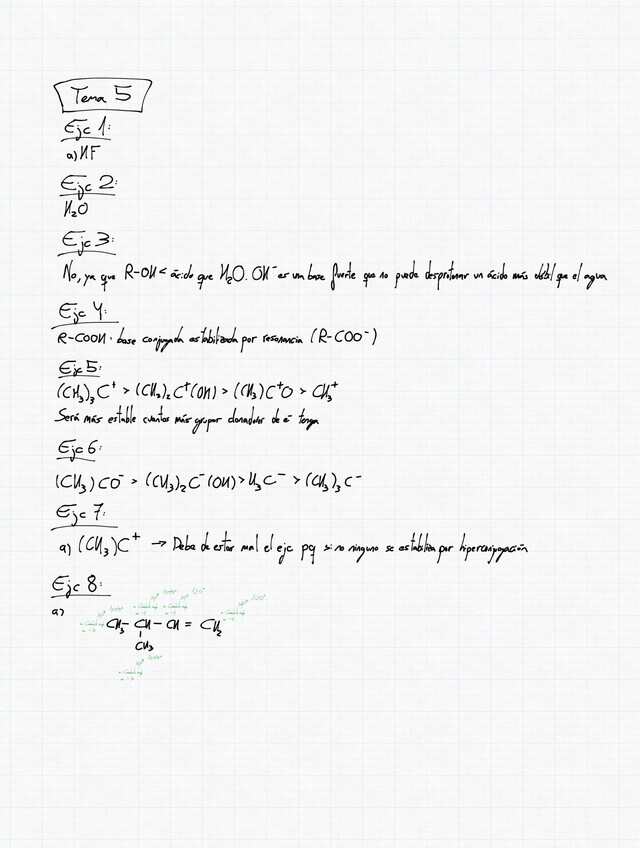 Tema 5
Ejc 1:
a) HF
Ejc 2:
H₂O
Ejc 3:
No, ya que R-OH < ácido que H₂O. OH⁻ es una base fuerte que no puede desprotonar un ácido más débil que el agua
Ejc 4:
R-COOH · base conjugada estabilizada por resonancia (R-COO⁻)
Ejc 5:
(CH₃)₃C⁺ > (CH₃)₂C⁺(OH) > (CH₃)C⁺O > CH₃⁺
Será más estable cuantos más grupos donador de e⁻ tenga
Ejc 6:
(CH₃)CO⁻ > (CH₃)₂C⁻(OH) > H₃C⁻ > (CH₃)₃C⁻
Ejc 7:
a) (CH₃)C⁺ → Debe de estar mal el ejc pq si no ninguno se estabiliza por hiperconjugación
Ejc 8:
a)
CH₃ - CH - CH = CH₂
CH₃